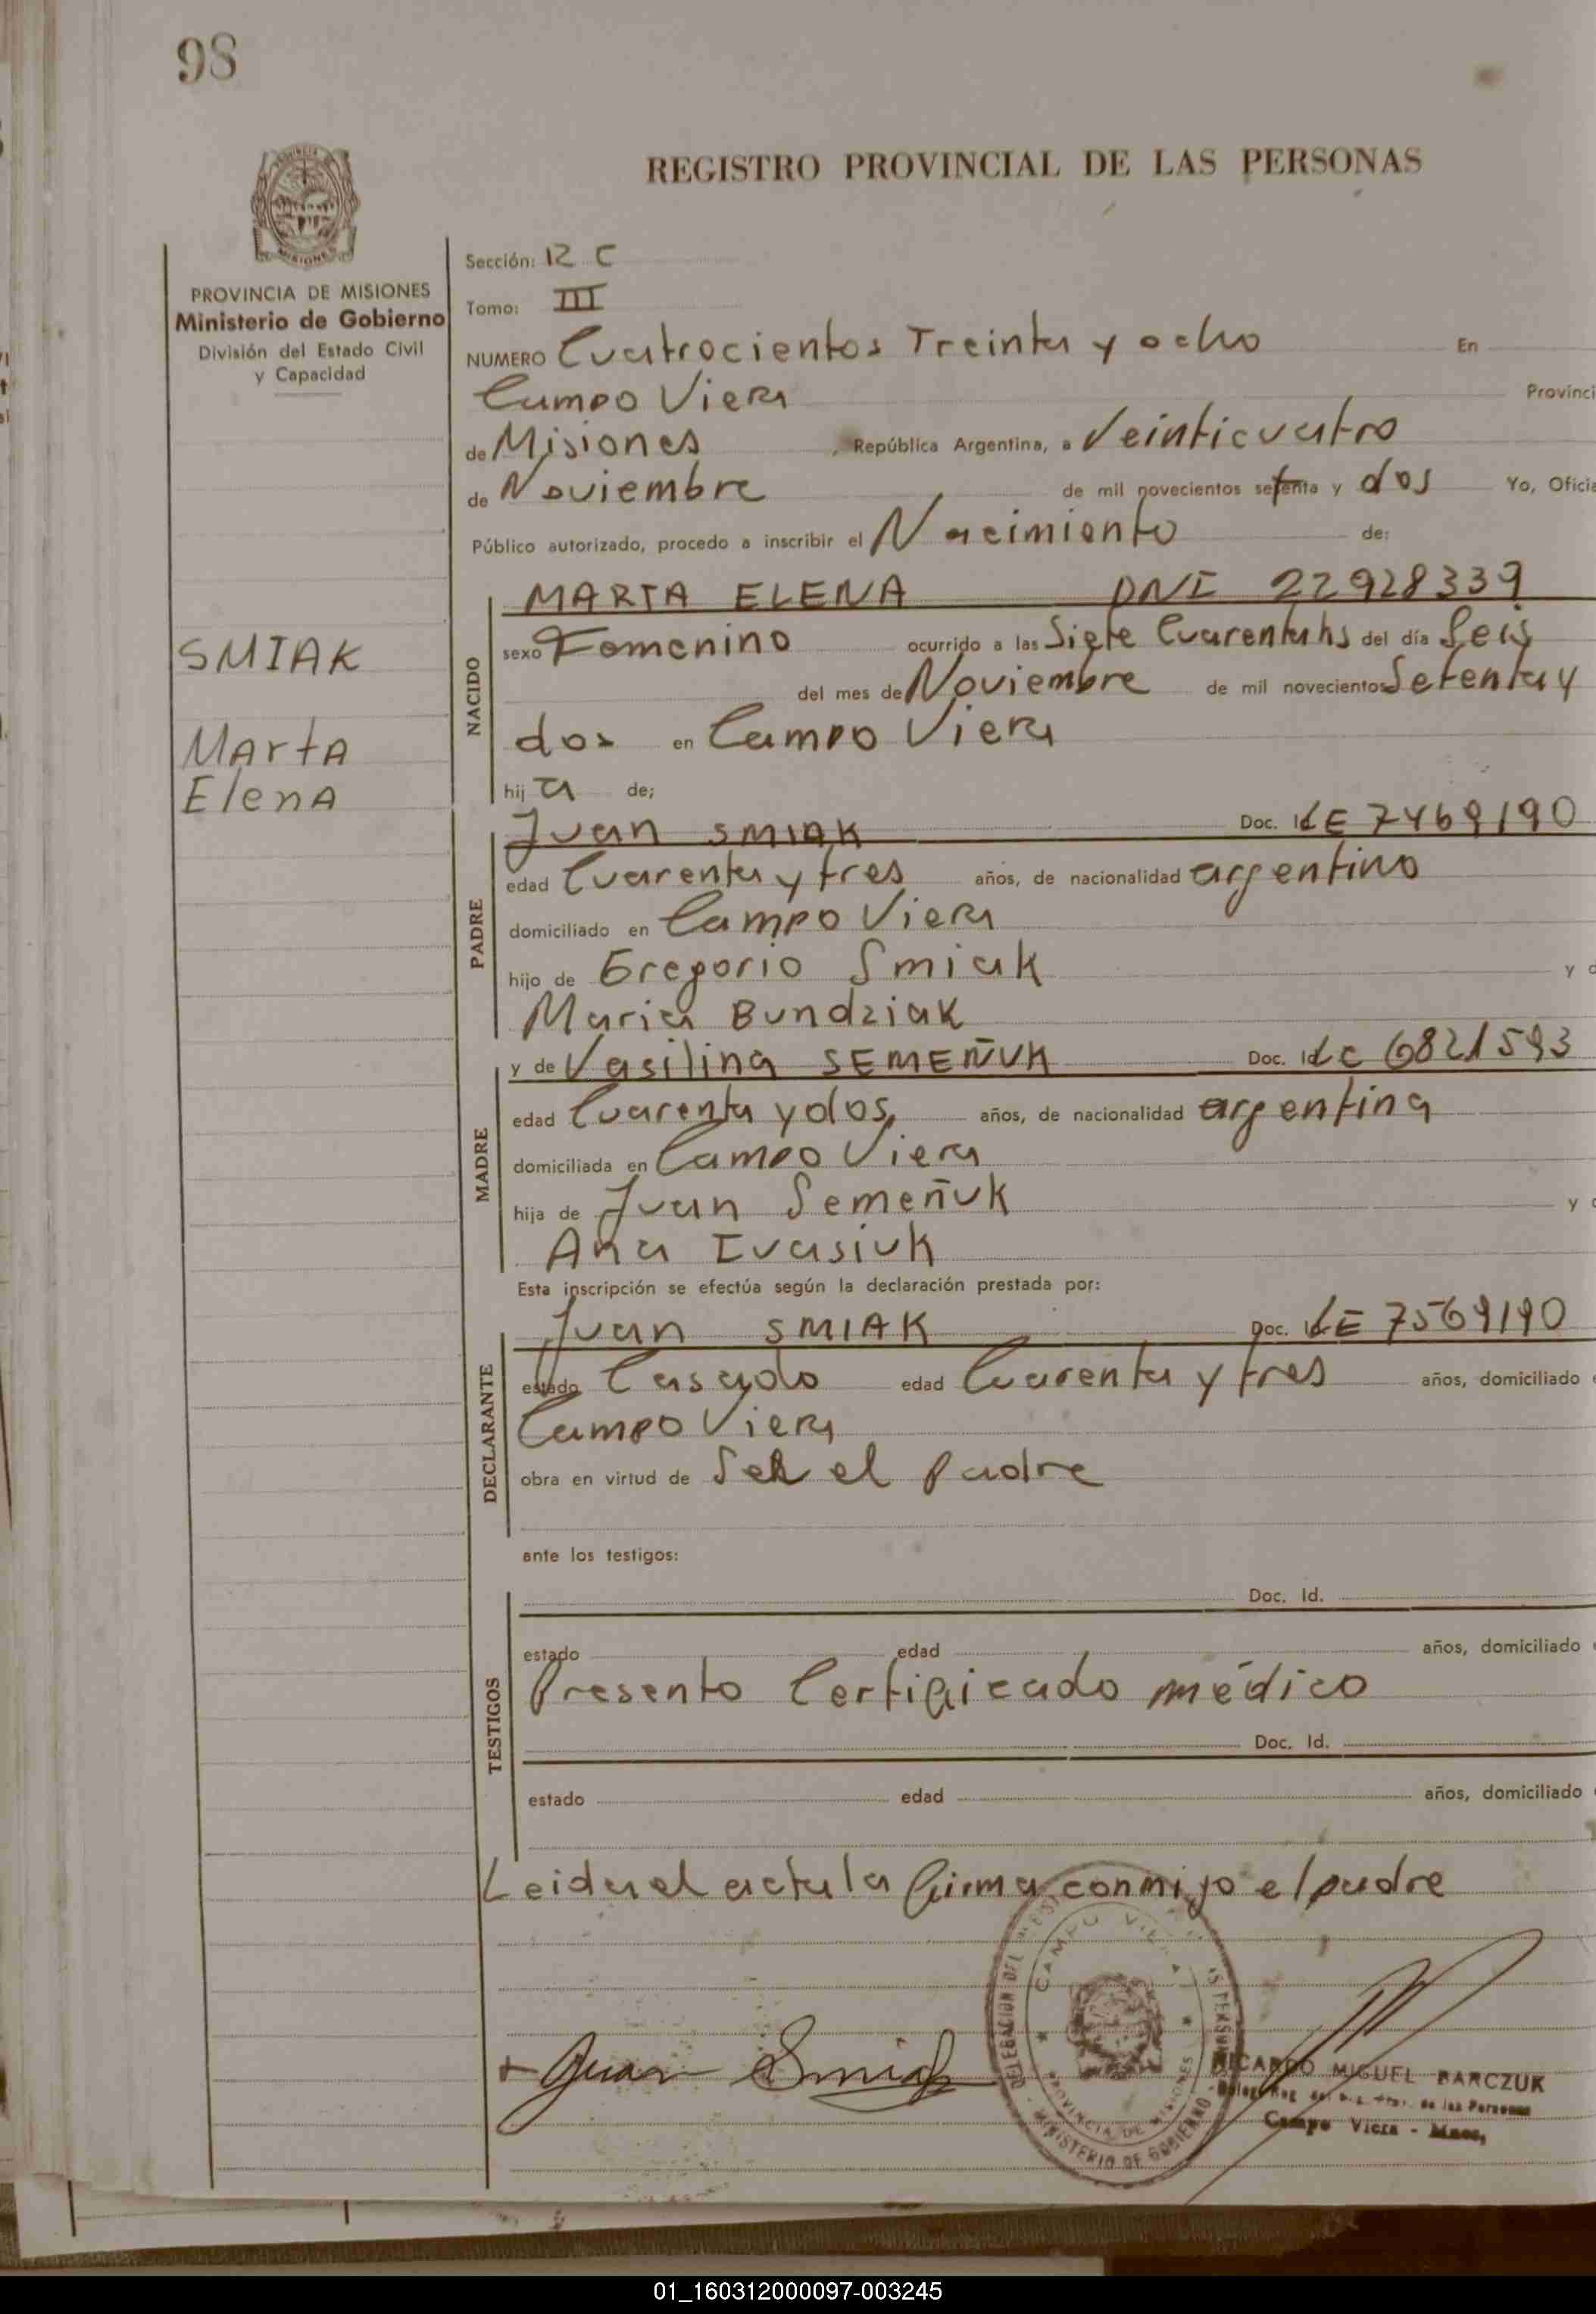 98
REGISTRO PROVINCIAL DE LAS PERSONAS
PROVINCIA DE MISIONES
Ministerio de Gobierno
División del Estado Civil
y Capacidad
Sección: 12 C
Tomo: III
NUMERO Cuatrocientos Treinta y ocho En
Campo Viera Provinci
de Misiones, República Argentina, a Veinticuatro
de Noviembre de mil novecientos setenta y dos Yo, Oficia
Público autorizado, procedo a inscribir el Nacimiento de:
MARTA ELENA DNI 22928339
SMIAK
Marta
Elena
NACIDO
sexo Femenino ocurrido a las Siete Cuarenta hs del día Seis
del mes de Noviembre de mil novecientos Setenta y
dos en Campo Viera
hij a de;
PADRE
Juan SMIAK Doc. Id LE 7469190
edad Cuarenta y tres años, de nacionalidad argentino
domiciliado en Campo Viera
hijo de Gregorio Smiak y d
Maria Bundziak
MADRE
y de Vasilina SEMEÑUK Doc. Id LC 6821593
edad Cuarenta y dos, años, de nacionalidad argentina
domiciliada en Campo Viera
hija de Juan Semeñuk y d
Ana Ivasiuk
Esta inscripción se efectúa según la declaración prestada por:
DECLARANTE
Juan SMIAK Doc. Id LE 7569190
estado Casado edad Cuarenta y tres años, domiciliado e
Campo Viera
obra en virtud de Ser el padre
ante los testigos:
TESTIGOS
Doc. Id.
estado edad años, domiciliado e
Presento Certificado médico
Doc. Id.
estado edad años, domiciliado
Leida el acta la firma conmigo el padre
Juan Smiak
DELEGACION DEL PERSONAS
CAMPO VIERA
PROVINCIA DE MISIONES
MINISTERIO DE GOBIERNO
RICARDO MIGUEL BARCZUK
de las Personas
Campo Viera - Mnes,
01_160312000097-003245